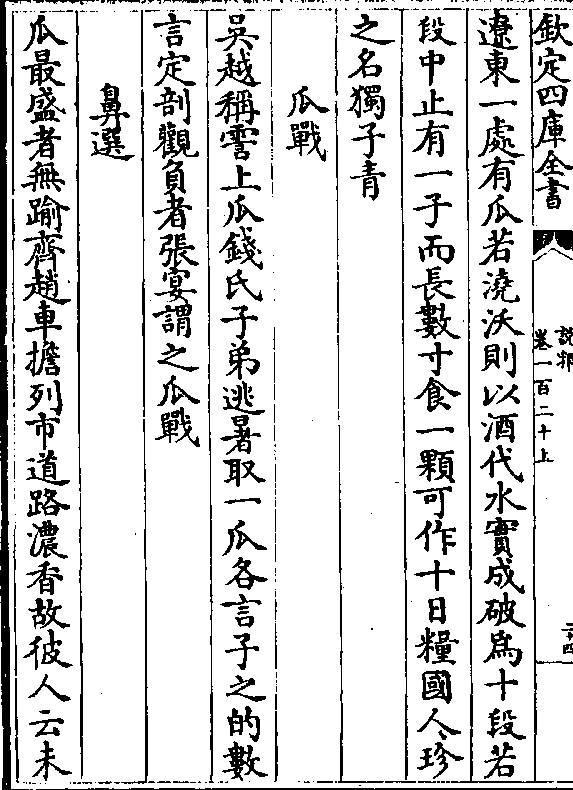 欽定四庫全書
說郛
卷一百二十上
二十四
遼東一處有瓜若澆沃則以酒代水實成破為十段若
段中止有一子而長數寸食一顆可作十日糧國人珍
之名獨子青
瓜戰
吳越稱霅上瓜錢氏子弟逃暑取一瓜各言子之的數
言定剖觀負者張宴謂之瓜戰
鼻選
瓜最盛者無踰齊趙車擔列市道路濃香故彼人云未